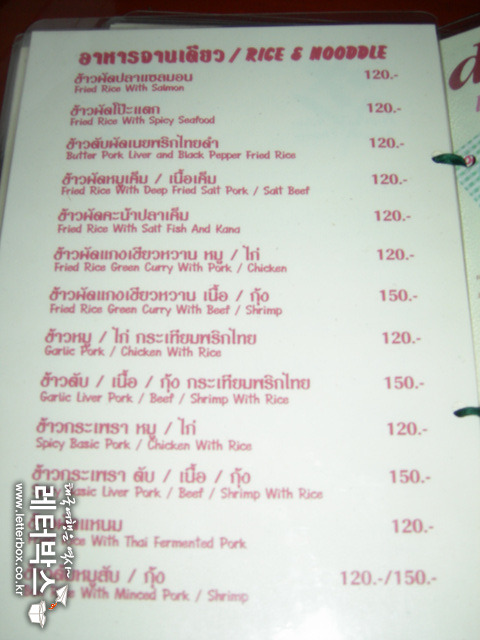 อาหารจานเดียว / RICE & NOODDLE
ข้าวผัดปลาแซลมอน 120.-
Fried Rice With Salmon
ข้าวผัดโป๊ะแตก 120.-
Fried Rice With Spicy Seafood
ข้าวตับผัดเนยพริกไทยดำ 120.-
Butter Pork Liver and Black Pepper Fried Rice
ข้าวผัดหมูเค็ม / เนื้อเค็ม 120.-
Fried Rice With Deep Fried Salt Pork / Salt Beef
ข้าวผัดคะน้าปลาเค็ม 120.-
Fried Rice With Salt Fish And Kana
ข้าวผัดแกงเขียวหวาน หมู / ไก่ 120.-
Fried Rice Green Curry With Pork / Chicken
ข้าวผัดแกงเขียวหวาน เนื้อ / กุ้ง 150.-
Fried Rice Green Curry With Beef / Shrimp
ข้าวหมู / ไก่ กระเทียมพริกไทย 120.-
Garlic Pork / Chicken With Rice
ข้าวตับ / เนื้อ / กุ้ง กระเทียมพริกไทย 150.-
Garlic Liver Pork / Beef / Shrimp With Rice
ข้าวกระเพรา หมู / ไก่ 120.-
Spicy Basic Pork / Chicken With Rice
ข้าวกระเพรา ตับ / เนื้อ / กุ้ง 150.-
Basic Liver Pork / Beef / Shrimp With Rice
แหนม 120.-
With Thai Fermented Pork
หมูสับ / กุ้ง 120.-/150.-
With Minced Pork / Shrimp
레터박스
www.letterbox.co.kr